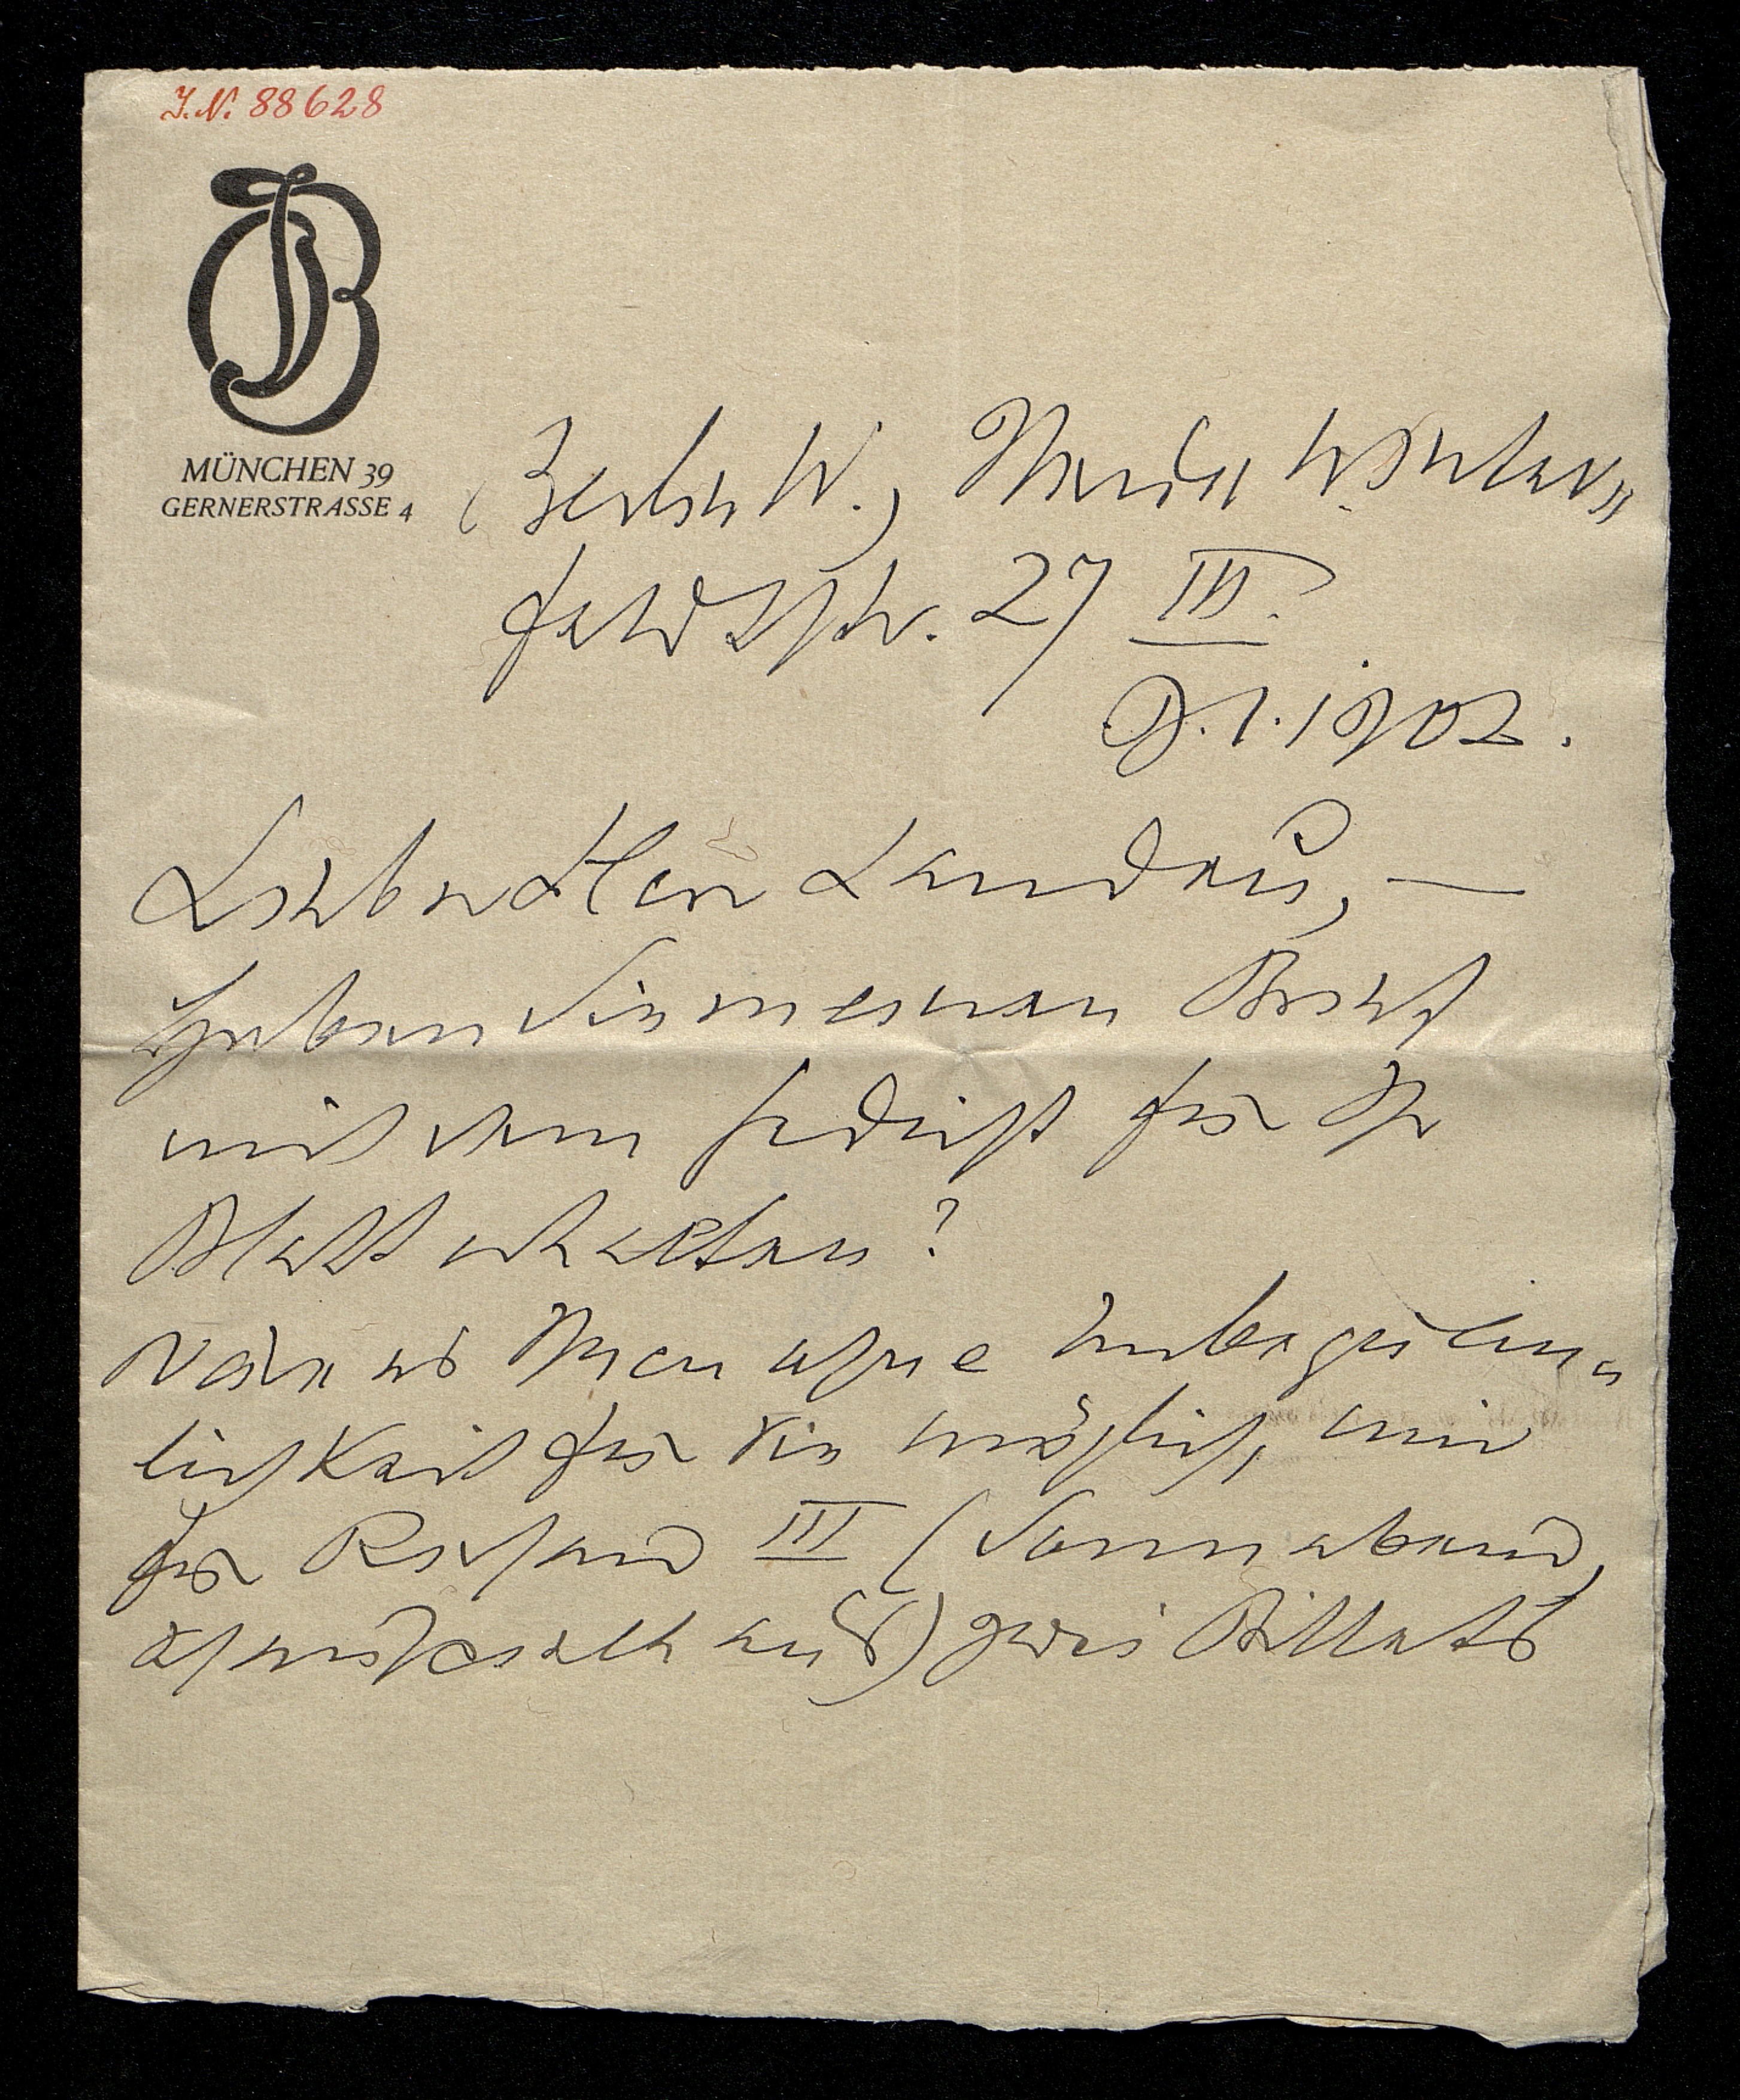 J.N. 88628
MÜNCHEN 39
GERNERSTRASSE 4
Berlin W., Neue Winter=
feldtstr. 27 III.
9.1.1902.
Lieber Herr Landau, —
Haben Sie meinen Brief
mit dem Gedicht für Ihr
Blatt erhalten?
Wäre es Ihnen ohne Unbequem=
lichkeit für Sie möglich, mir
für Richard III (Sonnabend,
Schauspielhaus) zwei Billets